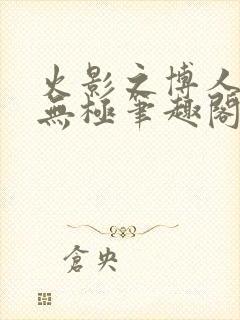 火影之博人
無極筆趣閣
倉央